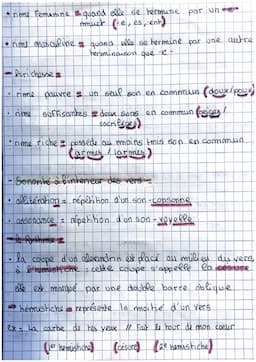 • rime féminine = quand elle se termine par un -e-
muet (-e, es, ent)
• rime masculine = quand elle se termine par une autre
terminaison que -e-
- La richesse =
• rime pauvre = un seul son en commun (doux/poux)
• rime suffisantes = deux sons en commun
• rime riche = possède au moins trois son en commun
(armes / larmes)
- Sonorité à l'intérieur des vers =
• allitération = répétition d'un son-consonne
• assonance = répétition d'un son-voyelle
- Le Rythme =
• La coupe d'un alexandrin est placé au milieu du vers,
à l'hémistiche : cette coupe s'appelle la césure
elle est marqué par une double barre oblique
• hémistiche = représente la moitié d'un vers
Ex = La courbe de tes yeux // fait le tour de mon coeur
(1er hémistiche) (césure) (2e hémistiche)